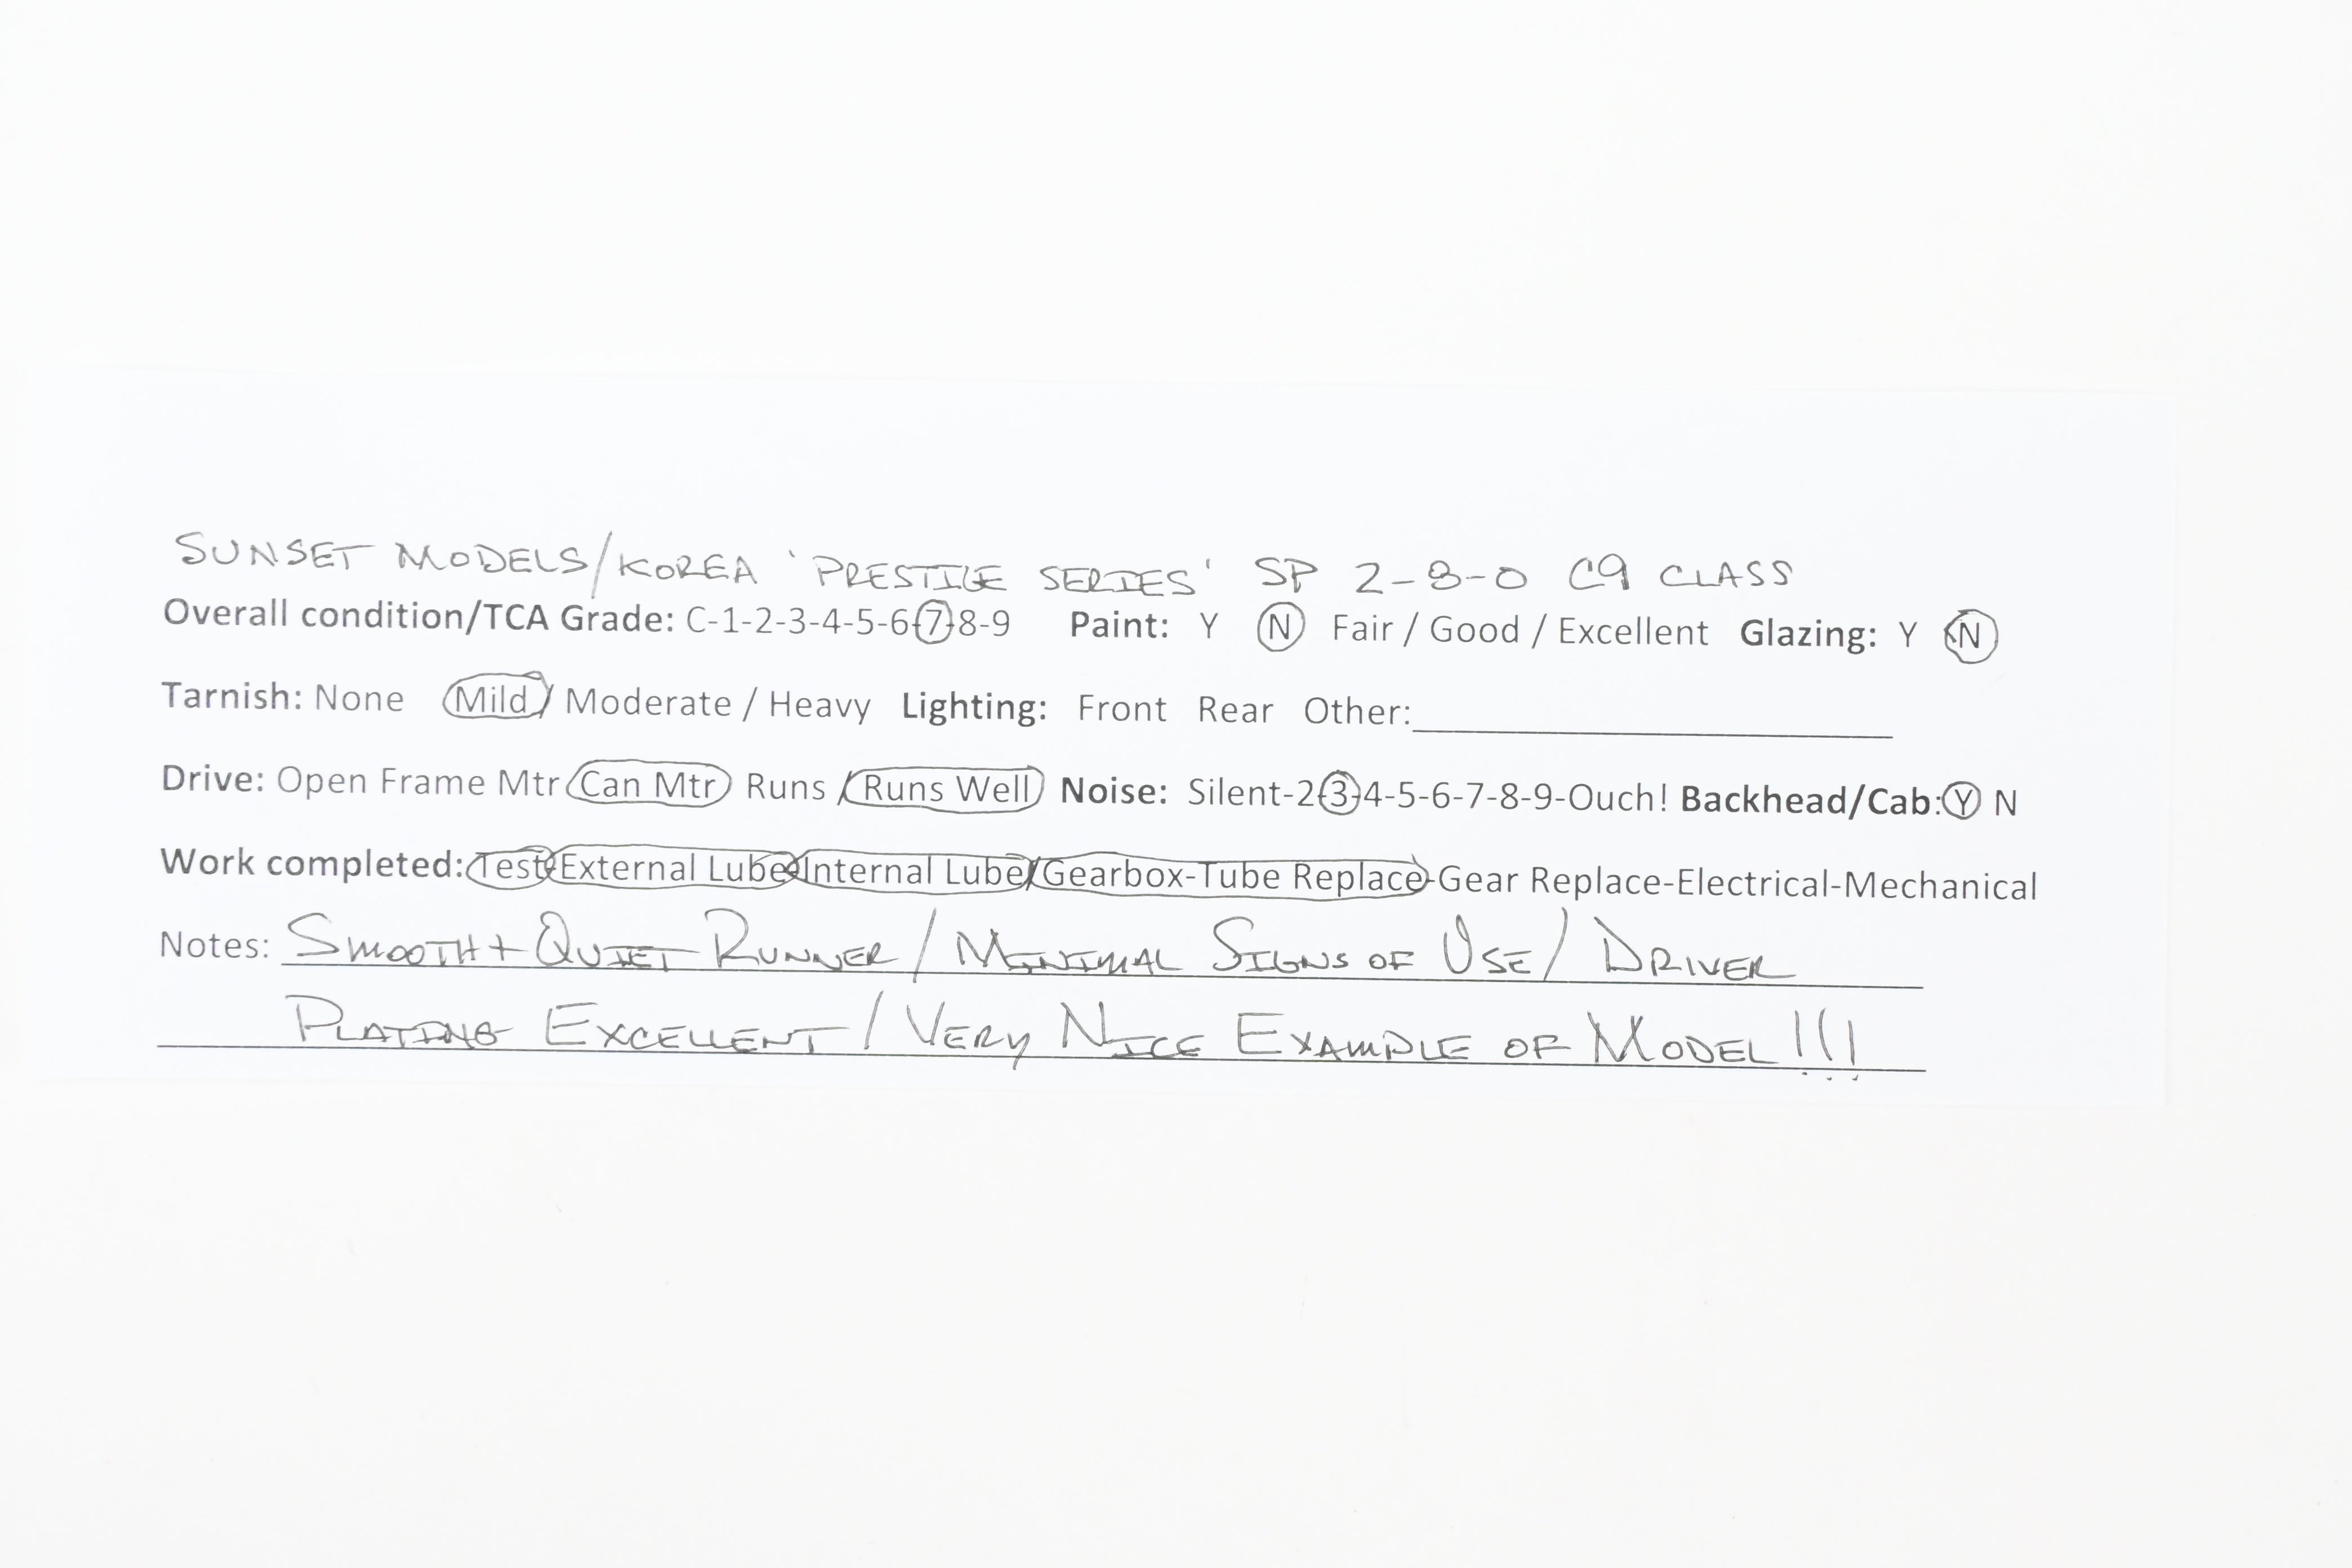 SUNSET MODELS/KOREA 'PRESTIGE SERIES' SP 2-8-0 C9 CLASS
Overall condition/TCA Grade: C-1-2-3-4-5-6-7-8-9 Paint: Y N Fair / Good / Excellent Glazing: Y N
Tarnish: None Mild / Moderate / Heavy Lighting: Front Rear Other:
Drive: Open Frame Mtr Can Mtr Runs / Runs Well Noise: Silent-2-3-4-5-6-7-8-9-Ouch! Backhead/Cab: Y N
Work completed: Test-External Lube-Internal Lube/Gearbox-Tube Replace-Gear Replace-Electrical-Mechanical
Notes: SMOOTH + QUIET RUNNER / MINIMAL SIGNS OF USE / DRIVER
PLATING EXCELLENT / VERY NICE EXAMPLE OF MODEL!!!